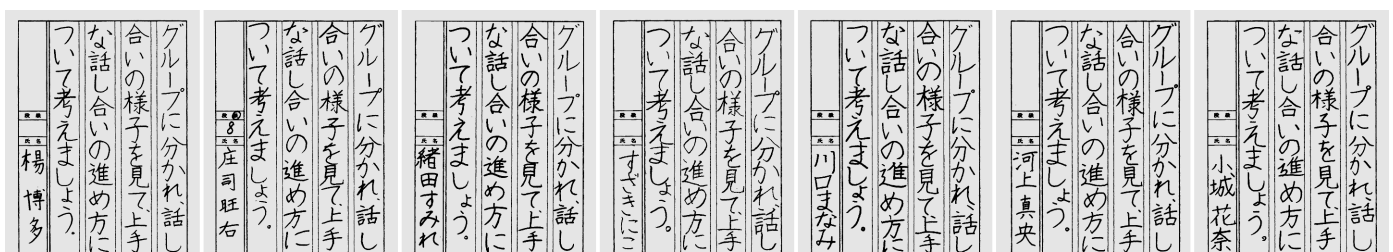 グループに分かれ、話し
合いの様子を見て、上手
な話し合いの進め方に
ついて考えましょう。
段 級
氏 名
楊 博多
グループに分かれ、話し
合いの様子を見て、上手
な話し合いの進め方に
ついて考えましょう。
段 級
8
氏 名
庄司旺右
グループに分かれ、話し
合いの様子を見て、上手
な話し合いの進め方に
ついて考えましょう。
段 級
氏 名
緒田すみれ
グループに分かれ、話し
合いの様子を見て上手
な話し合いの進め方に
ついて考えましょう。
段 級
氏 名
すざきにこ
グループに分かれ、話し
合いの様子を見て、上手
な話し合いの進め方に
ついて考えましょう。
段 級
氏 名
川口まなみ
グループに分かれ、話し
合いの様子を見て、上手
な話し合いの進め方に
ついて考えましょう。
段 級
氏 名
河上真央
グループに分かれ、話し
合いの様子を見て、上手
な話し合いの進め方に
ついて考えましょう。
段 級
氏 名
小城花奈